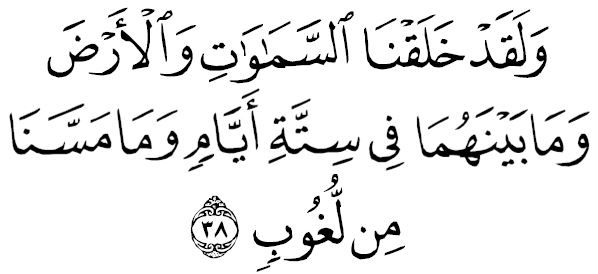 وَلَقَدْ خَلَقْنَا ٱلسَّمَـٰوَٰتِ وَٱلْأَرْضَ
وَمَا بَيْنَهُمَا فِى سِتَّةِ أَيَّامٍ وَمَا مَسَّنَا
مِن لُّغُوبٍ ٣٨